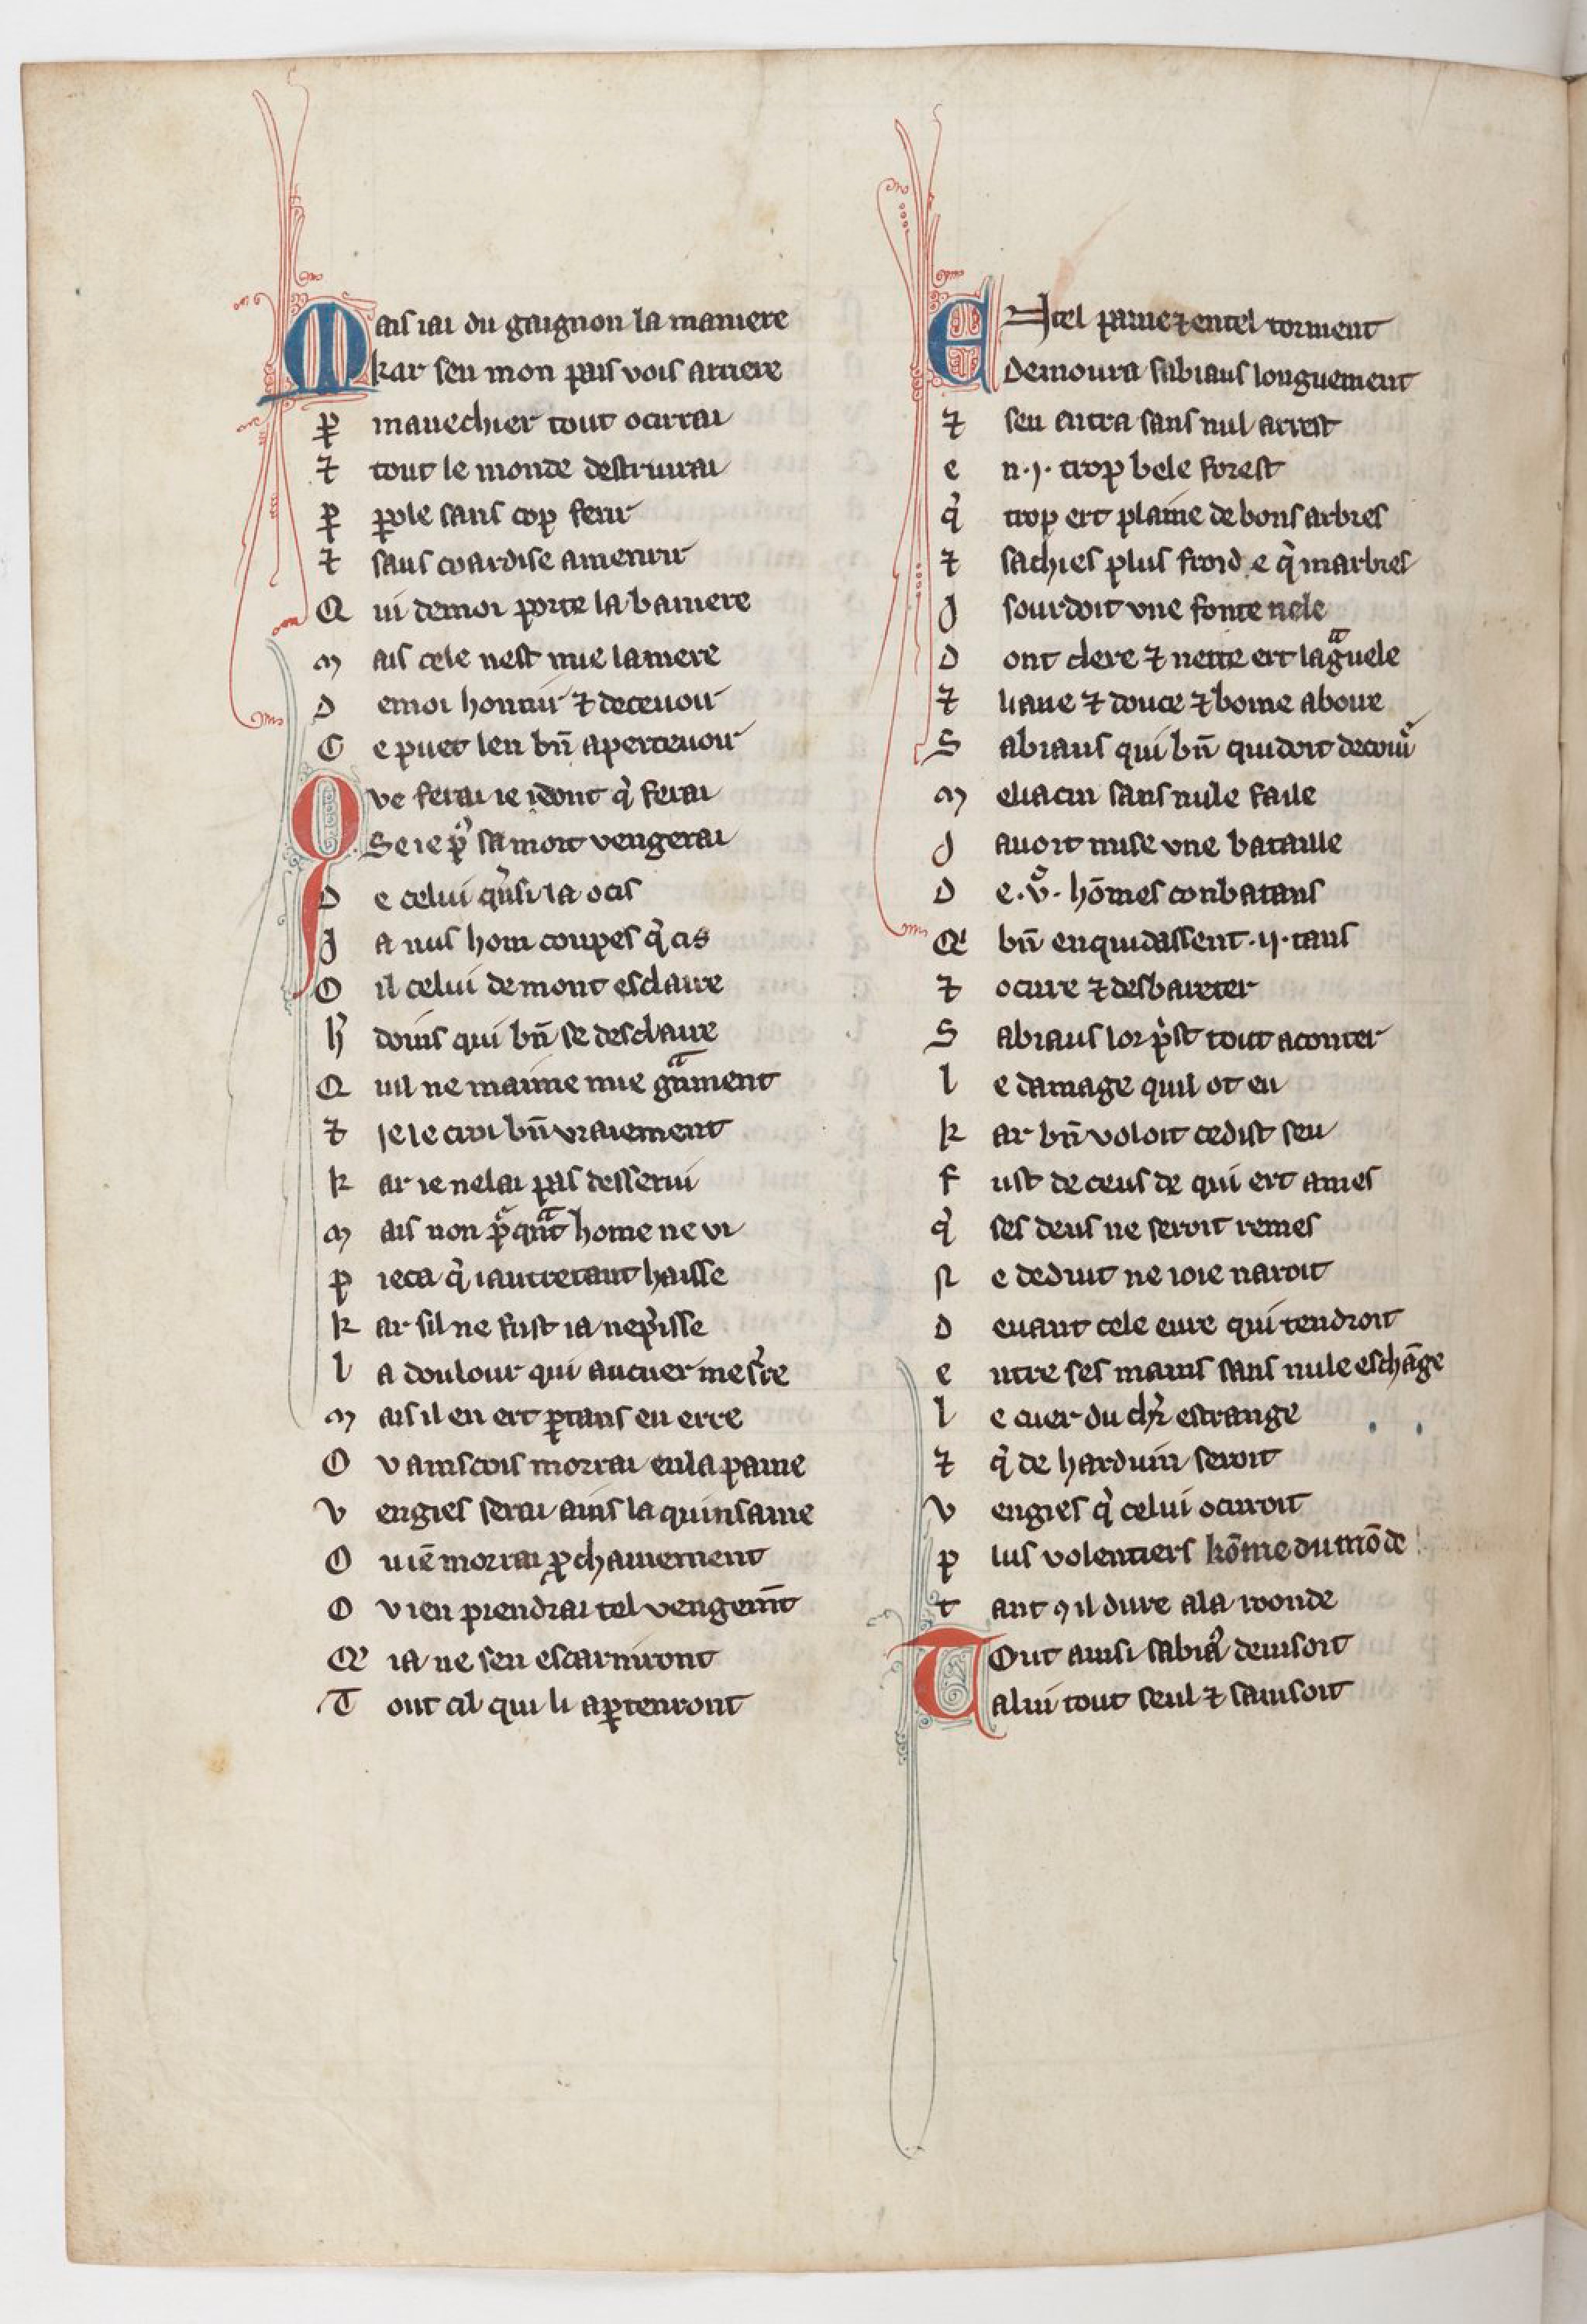 Mais iai du gaignon la maniere
kar sen mon pais vois arriere
ꝑ mauechier tout ocirrai
⁊ tout le monde destruirai
ꝑ ꝑole sans cop ferir
⁊ sans coardise amenrir
Q ui demoi porte la baniere
m ais cele nest mie lamere
D emoi honnir ⁊ deceuoir
C e puet len bn̄ aperceuoir
Que ferai ie idont q̓ ferai
Se ie pͬ sa mort vengerai
D e celui qͥnsi la ocis
J a nus hom coupes q̓ cis
O il celui de mont esclaire
h̓ douīs qui bn̄ se desclaire
Q uil ne maime mie gᵃnment
⁊ ie le croi bn̄ vraiement
k ar ie nelai pas desserui
m ais non pͬ qᵃnt home ne vi
p ieca q̓ iautretant haisse
k ar sil ne fust ia nep̓isse
l a doulour qui aucuer mes̓re
m ais il en ert ꝑtans en erre
O v ainscois morrai enla paine
V engies serai ains la quinsaine
O u iē morrai ꝓchainement
O v ien prendrai tel vengemn̄t
Q' ia ne sen escarniront
T out cil qui li aꝑtenront
EN tel paine ⁊ entel torment
Demoura sabiaus longuement
⁊ sen entra sans nul arrest
e n .j. trop bele forest
q̓ trop ert plaine de bons arbres
⁊ sachies plus froide q̓ marbres
J sourdoit vne fontenele
D ont clere ⁊ nette ert lagᵃuele
⁊ liaue ⁊ douce ⁊ bonne aboire
S abiaus qui bn̄ quidoit decoiuͬ
m eliacin sans nule faile
J auoit mise vne bataille
D e .vͨ. hōmes conbatans
Q' bn̄ enquidassent .ij. tans
⁊ ocirre ⁊ desbareter
S abiaus lor p̓st tout aconter
l e damage quil ot eu
k ar bn̄ voloit cedist seu
f ust de ceus de qui ert ames
q̓ ses deus ne seroit remes
N e deduit ne ioie naroit
D euant cele eure qui tendroit
e ntre ses mains sans nule eschāge
l e cuer du ch̓r estrange
⁊ q̓ de harduin seroit
V engies q̓ celui ocirroit
p lus volentiers kōme du mōde
t ant ꝯ il dure ala roonde
Tout ainsi sabiaͧ deuisoit
alui tout seul ⁊ sainsoit